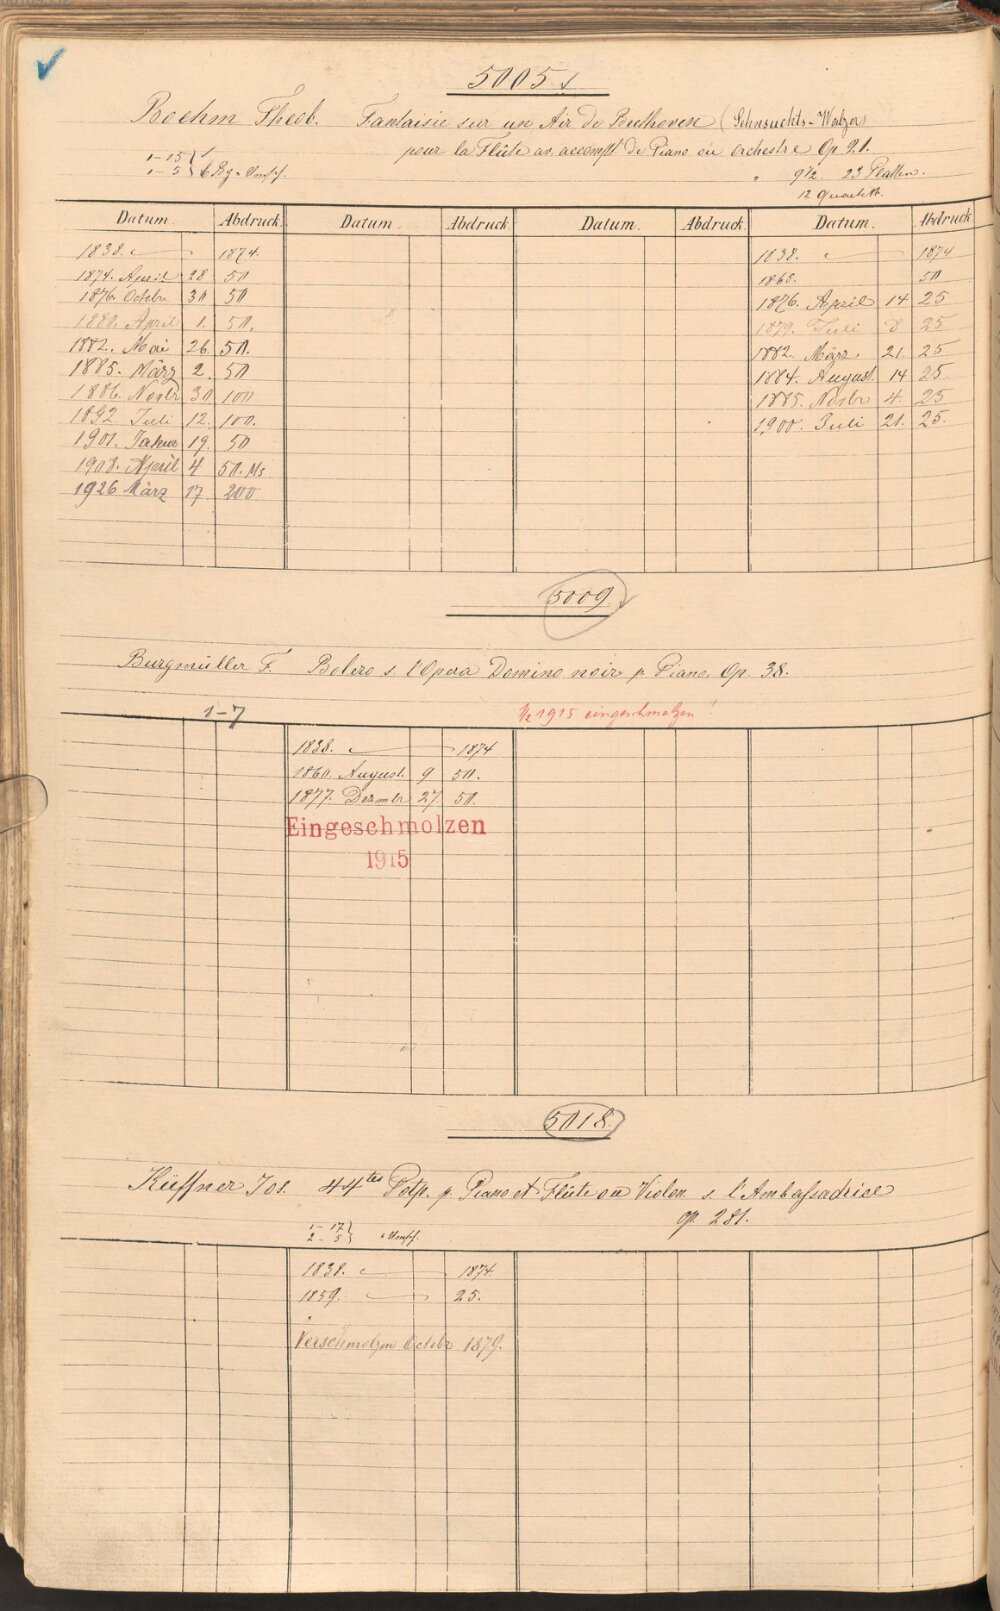 5005
Boehm Theob. Fantaisie sur un Air de Beethoven (Sehnsuchts-Walzer)
pour la Flûte av. accompt de Piano ou Orchestre Op 21.
1-15
1-5
" 9 1/2. 23 Platten.
12 Quartett.
Datum. Abdruck. Datum. Abdruck. Datum. Abdruck. Datum. Abdruck
1838. 1874. 1838. 1874
1874. April 28 50 1868. 50
1876. Octobr 30 50 1876. April 14 25
1880. April 1. 50. 1879. Juli 8 25
1882. Mai 26 50. 1882. März 21. 25
1885. März 2. 50 1884. August. 14 25
1886. Novbr 30 100 1885. Novbr 4. 25
1892. Juli 12. 100. 1900. Juli 21. 25.
1901. Januar 19. 50
1908. April 4 50. Ms
1926 März 17 200
5009.
Burgmüller F. Bolero s. l'Opera Domino noir p. Piano. Op. 38.
1-7 1915 eingeschmolzen!
1838. 1874
1860. August. 9 50.
1877. Dezmbr 27. 50.
Eingeschmolzen
1915
5018.
Küffner Jos. 44tes Potp. p. Piano et Flûte ou Violon s. l'Ambassadrice
op 281.
1-17
2-5
1838. 1874
1859. 25.
Verschmolzen Octobr 1879.